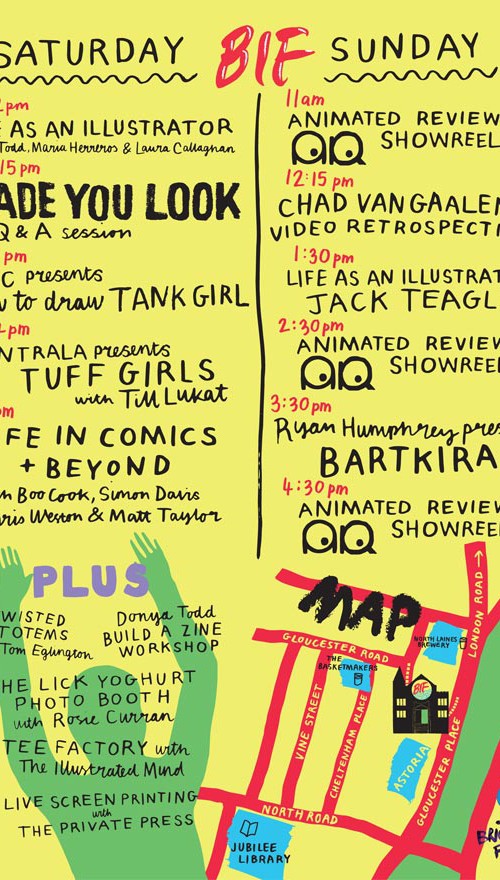 SATURDAY
BIF
SUNDAY
2pm
AS AN ILLUSTRATOR
Todd, Maria Herreros & Laura Callaghan
15 pm
ADE YOU LOOK
Q & A session
pm
C presents
to draw TANK GIRL
pm
NTRALA presents
TUFF GIRLS
with Till Lukat
pm
FE IN COMICS
+ BEYOND
Boo Cook, Simon Davis
ris Weston & Matt Taylor
11am
ANIMATED REVIEW
SHOWREEL
12:15 pm
CHAD VANGAALEN
VIDEO RETROSPECTI
1:30pm
LIFE AS AN ILLUSTRAT
JACK TEAGL
2:30pm
ANIMATED REVIEW
SHOWREEL
3:30pm
Ryan Humphrey pres
BARTKIRA
4:30pm
ANIMATED REVIEW
SHOWREEL
PLUS
WISTED
TOTEMS
Tom Eglington
Donya Todd
BUILD A ZINE
WORKSHOP
HE LICK YOGHURT
PHOTO BOOTH
with Rosie Curran
TEE FACTORY with
The Illustrated Mind
LIVE SCREEN PRINTING
with
THE PRIVATE PRESS
MAP
LONDON ROAD →
NORTH LAINES
BREWERY
GLOUCESTER ROAD
THE
BASKETMAKERS
BIF
VINE STREET
CHELTENHAM PLACE
ASTORIA
GLOUCESTER PLACE
NORTH ROAD
JUBILEE
LIBRARY